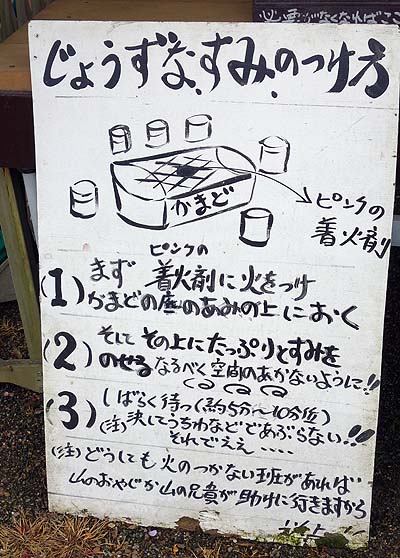 じょうずな、すみ、のつけ方
かまど
ピンクの
着火剤
ピンクの
(1) まず 着火剤に火をつけ
かまどの底のあみの上におく
(2) そして その上にたっぷりとすみを
のせる なるべく空間のあかないように!!
(3) しばらく待つ(約5分〜10分後)
(注)決してうちわなどであぶらない!!
それでええ ‥‥
(注)どうしても火のつかない班があれば
山のおやじか山の兄貴が助けに行きますから